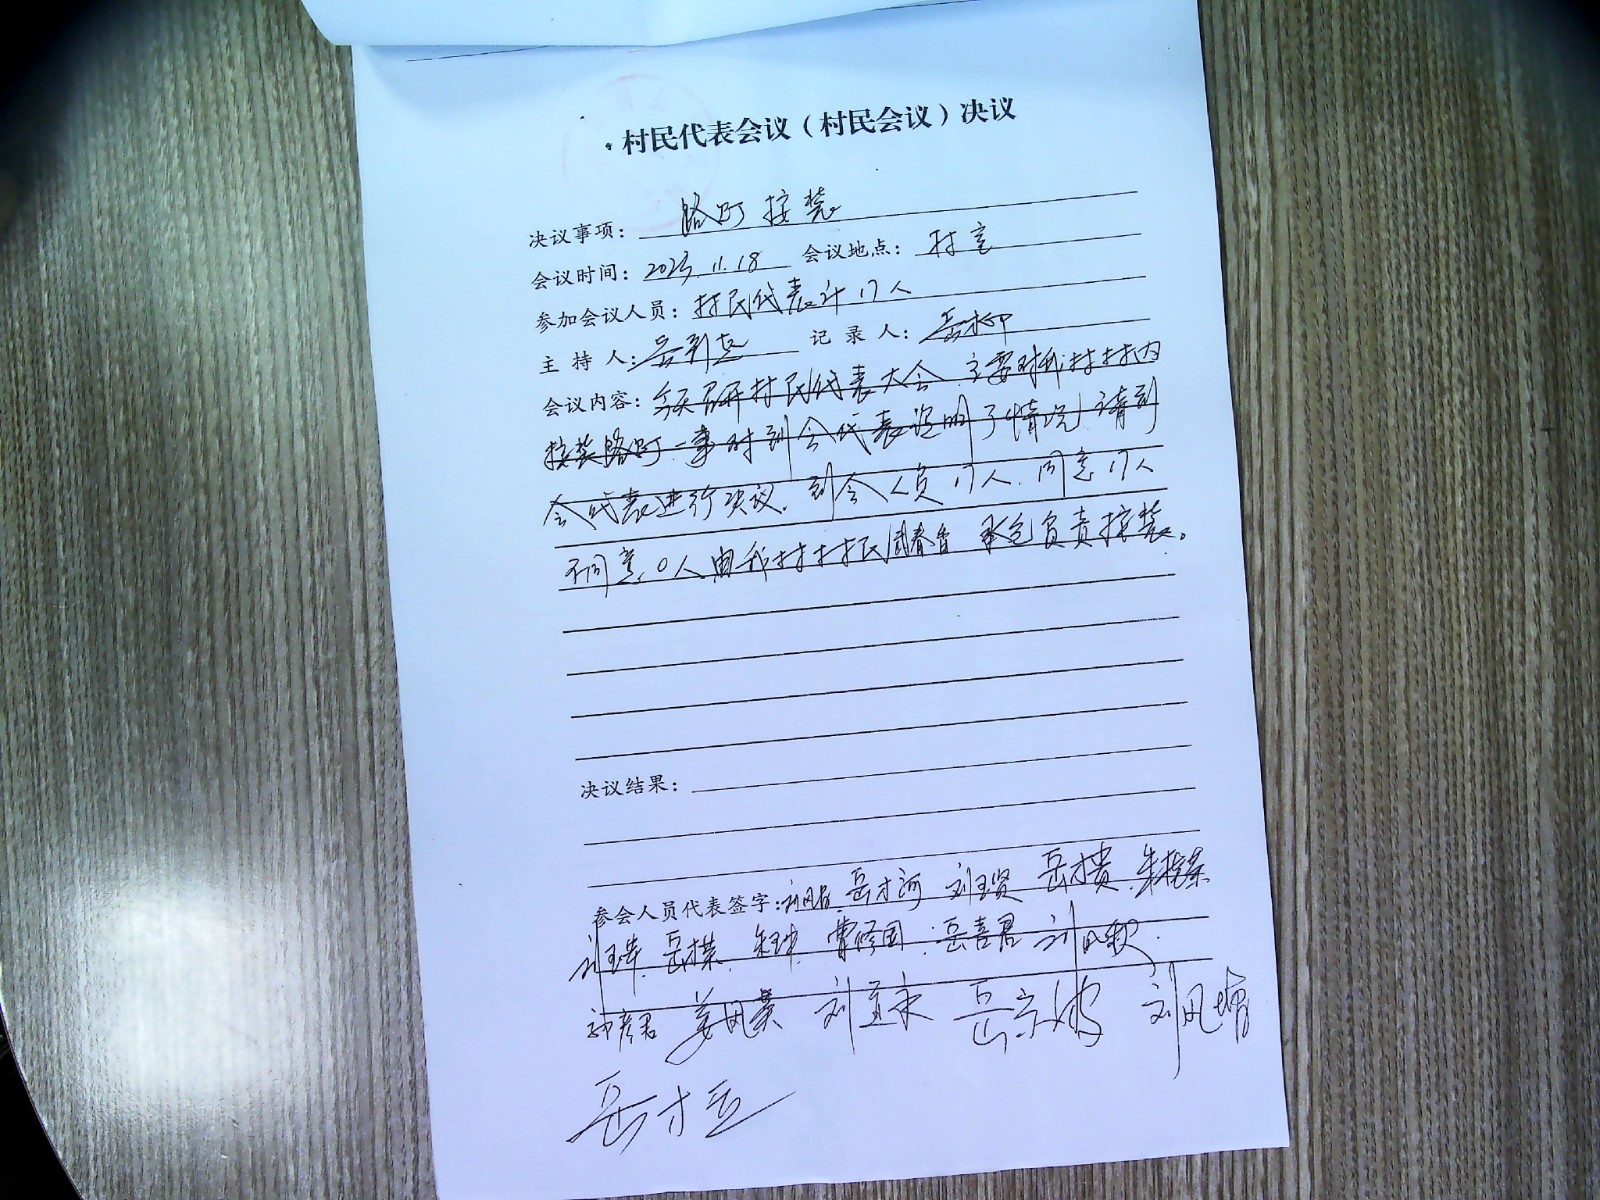 村民代表会议（村民会议）决议
决议事项：路灯按装
会议时间：2023.11.18 会议地点：村室
参加会议人员：村民代表计17人
主持人：岳 记录人：岳
会议内容：今天召开村民代表大会，主要对我村村内
按装路灯一事对到会代表说明了情况，请到
会代表进行决议，到会人员17人，同意17人
不同意0人，由我村村民 承包负责按装。
决议结果：
参会人员代表签字： 岳才河 刘玉贤 岳才贵
曹修国 岳喜君
彦君 刘宜永 岳京波 刘凤
岳才立